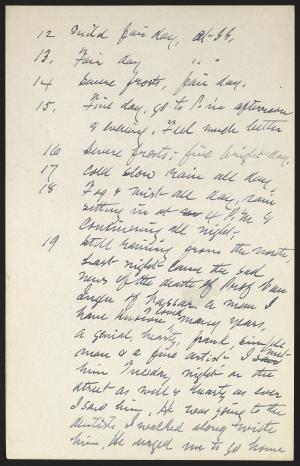 12 Mild fair day, at S.S.
13. Fair day " "
14 Severe frosts, fair day.
15. Fine day, go to P. in afternoon
& evening. Feel much better
16 Severe frosts; fine bright day.
17 Cold slow rain all day.
18 Fog & mist all day, rain
setting in at 4 P.M. &
continuing all night
19 Still raining from the north,
Last night came the sad
news of the death of Prof Van
Ingen of Vassar. A man I
have known & loved many years,
a genial, hearty, frank, simple
man & a fine artist. I met
him Tuesday night on the
street as well & hearty as ever
I saw him. He was going to the
dentists, I walked along with
him, He urged me to go home